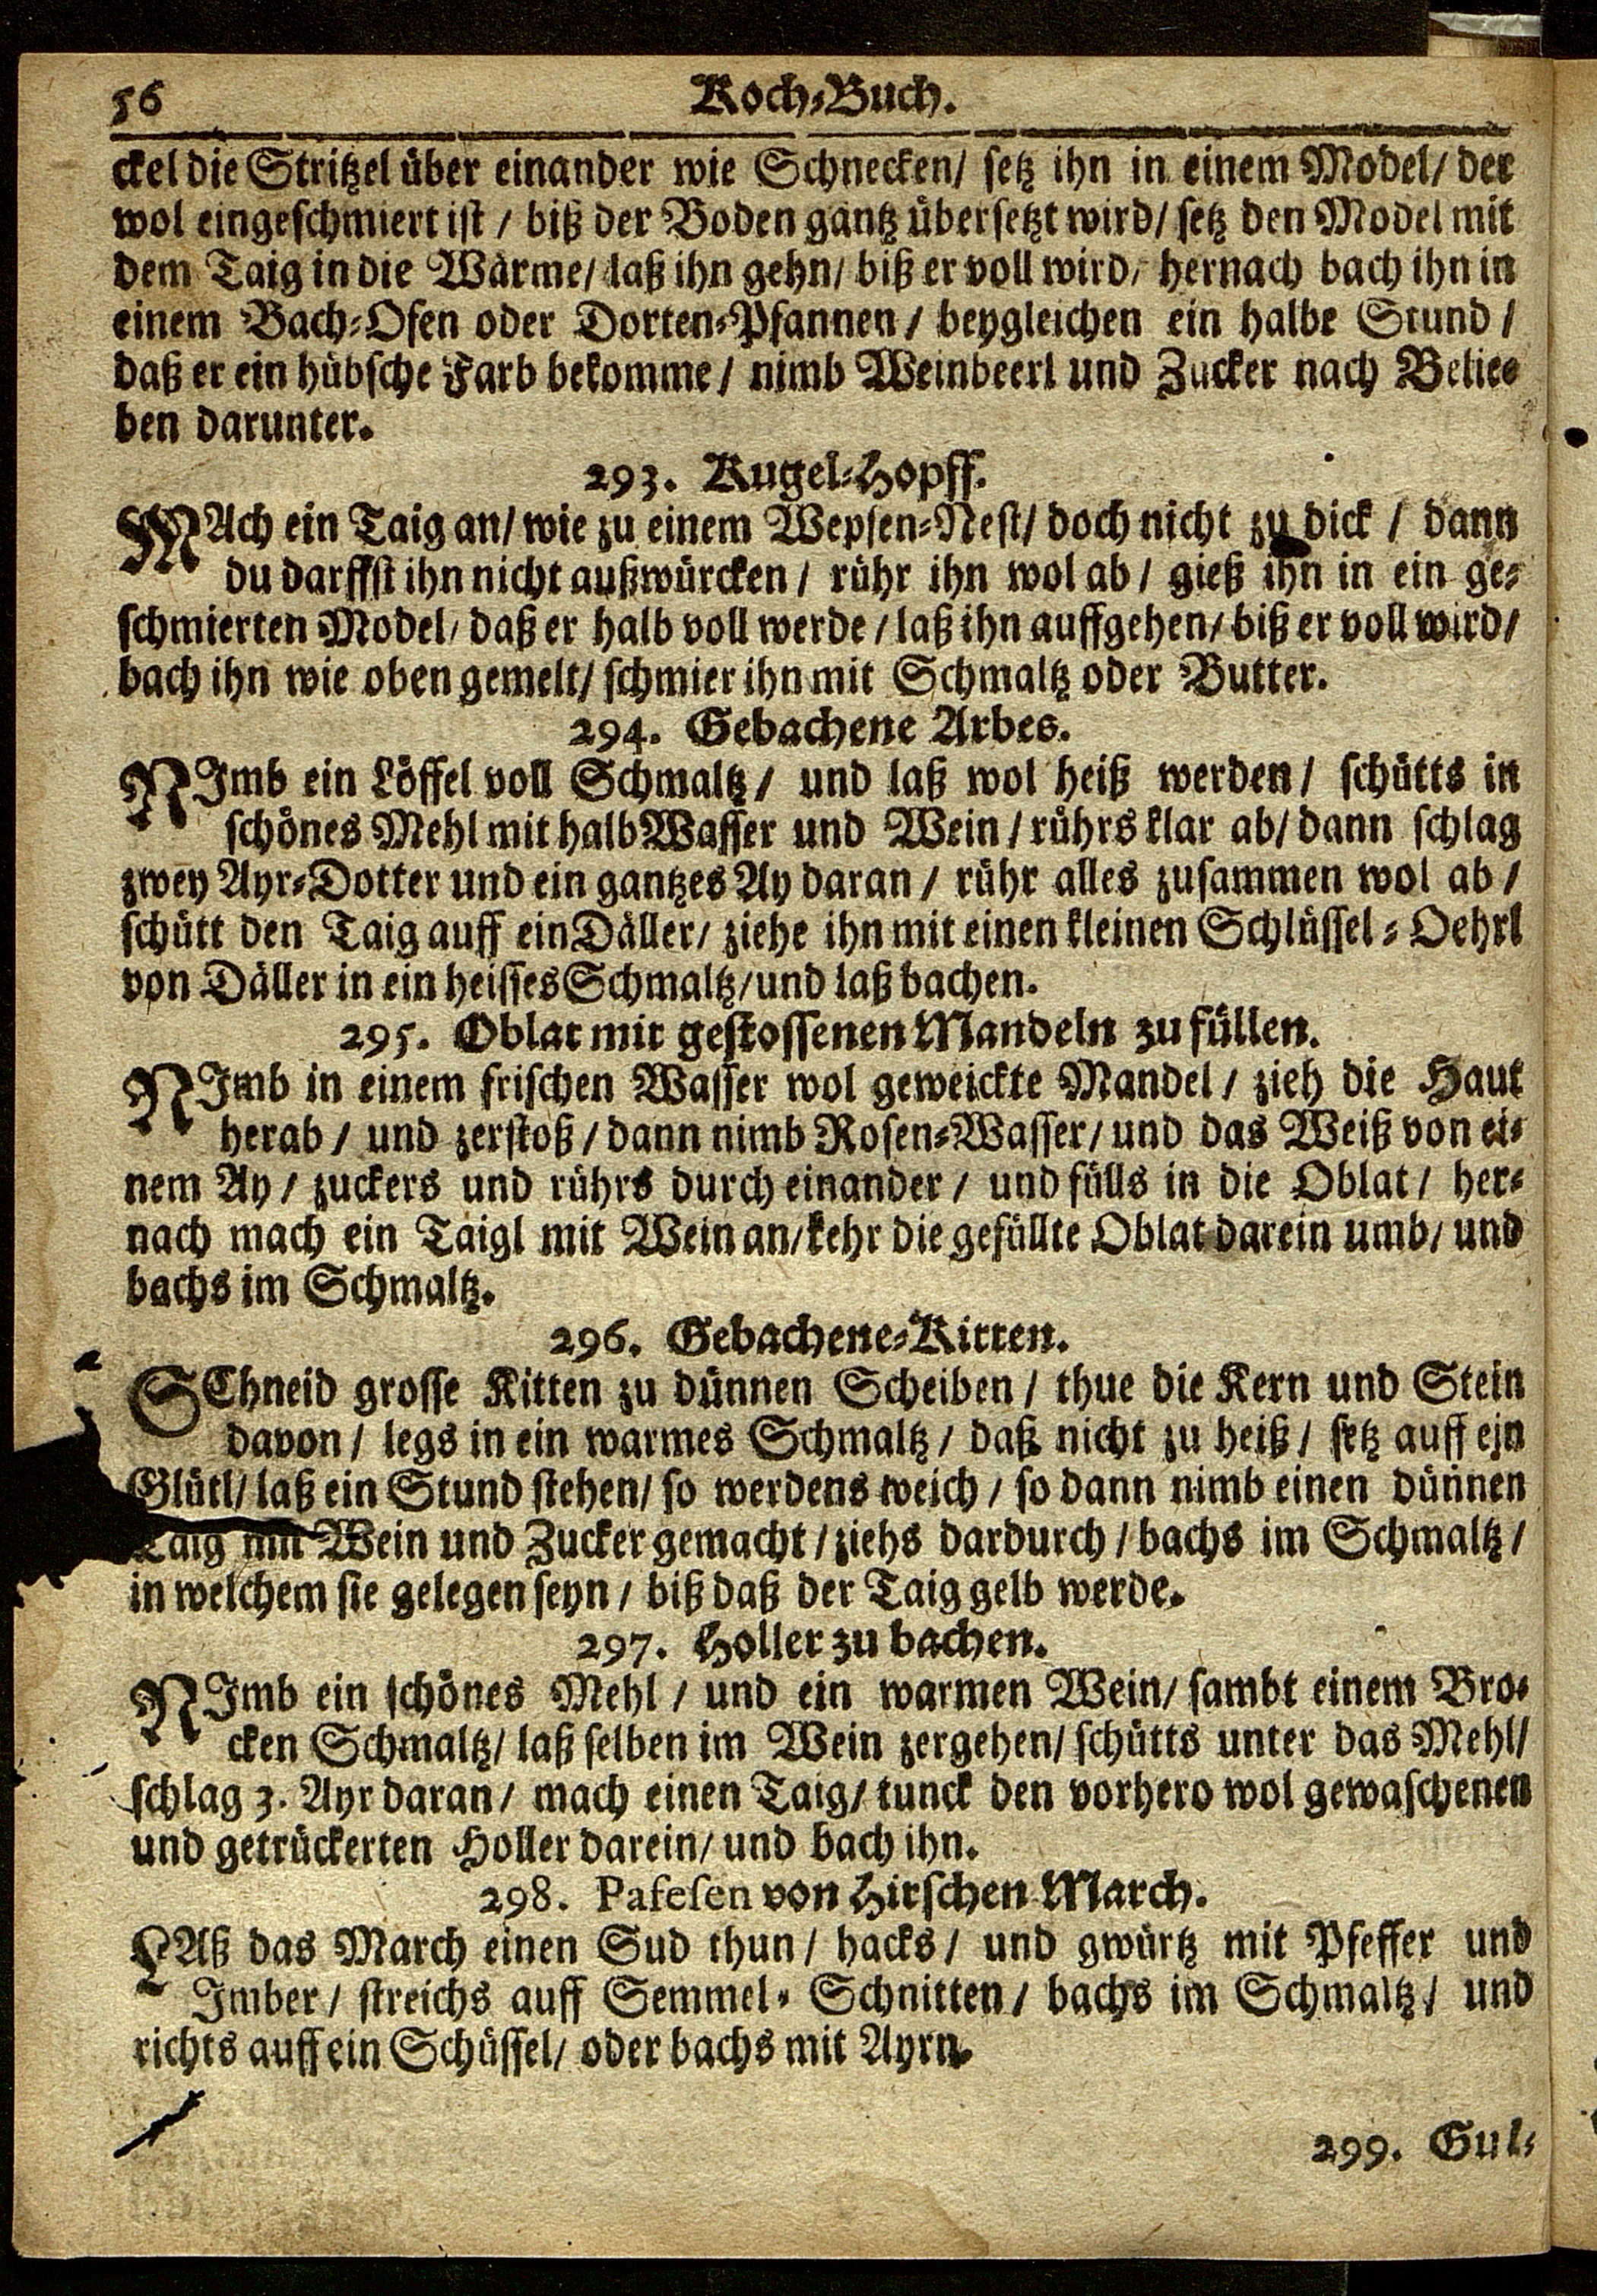 56 Koch-Buch.
ckel die Stritzel über einander wie Schnecken/ setz ihn in einem Model/ der
wol eingeschmiert ist / biß der Boden gantz übersetzt wird/ setz den Model mit
dem Taig in die Wärme/ laß ihn gehn/ biß er voll wird/ hernach bach ihn in
einem Bach-Ofen oder Dorten-Pfannen / beygleichen ein halbe Stund /
daß er ein hübsche Farb bekomme / nimb Weinbeerl und Zucker nach Belie-
ben darunter.
293. Kugel-Hopff.
MAch ein Taig an/ wie zu einem Wepsen-Nest/ doch nicht zu dick / dann
du darffst ihn nicht außwürcken / rühr ihn wol ab / gieß ihn in ein ge-
schmierten Model/ daß er halb voll werde / laß ihn auffgehen/ biß er voll wird/
bach ihn wie oben gemelt/ schmier ihn mit Schmaltz oder Butter.
294. Gebachene Arbes.
NImb ein Löffel voll Schmaltz / und laß wol heiß werden / schütts in
schönes Mehl mit halb Wasser und Wein / rührs klar ab/ dann schlag
zwey Ayr-Dotter und ein gantzes Ay daran / rühr alles zusammen wol ab /
schütt den Taig auff ein Däller/ ziehe ihn mit einen kleinen Schlüssel-Oehrl
von Däller in ein heisses Schmaltz/ und laß bachen.
295. Oblat mit gestossenen Mandeln zu füllen.
NImb in einem frischen Wasser wol geweickte Mandel / zieh die Haut
herab / und zerstoß / dann nimb Rosen-Wasser/ und das Weiß von ei-
nem Ay / zuckers und rührs durch einander / und fülls in die Oblat / her-
nach mach ein Taigl mit Wein an/ kehr die gefüllte Oblat darein umb/ und
bachs im Schmaltz.
296. Gebachene-Kitten.
SChneid grosse Kitten zu dünnen Scheiben / thue die Kern und Stein
davon / legs in ein warmes Schmaltz / daß nicht zu heiß / setz auff ein
Glütl/ laß ein Stund stehen/ so werdens weich / so dann nimb einen dünnen
Taig mit Wein und Zucker gemacht / ziehs dardurch / bachs im Schmaltz /
in welchem sie gelegen seyn / biß daß der Taig gelb werde.
297. Holler zu bachen.
NImb ein schönes Mehl / und ein warmen Wein/ sambt einem Bro-
cken Schmaltz/ laß selben im Wein zergehen/ schütts unter das Mehl/
schlag 3. Ayr daran / mach einen Taig/ tunck den vorhero wol gewaschenen
und getrückerten Holler darein/ und bach ihn.
298. Pafesen von Hirschen-March.
LAß das March einen Sud thun / hacks / und gwürtz mit Pfeffer und
Imber / streichs auff Semmel-Schnitten / bachs im Schmaltz / und
richts auff ein Schüssel/ oder bachs mit Ayrn.
299. Gul-